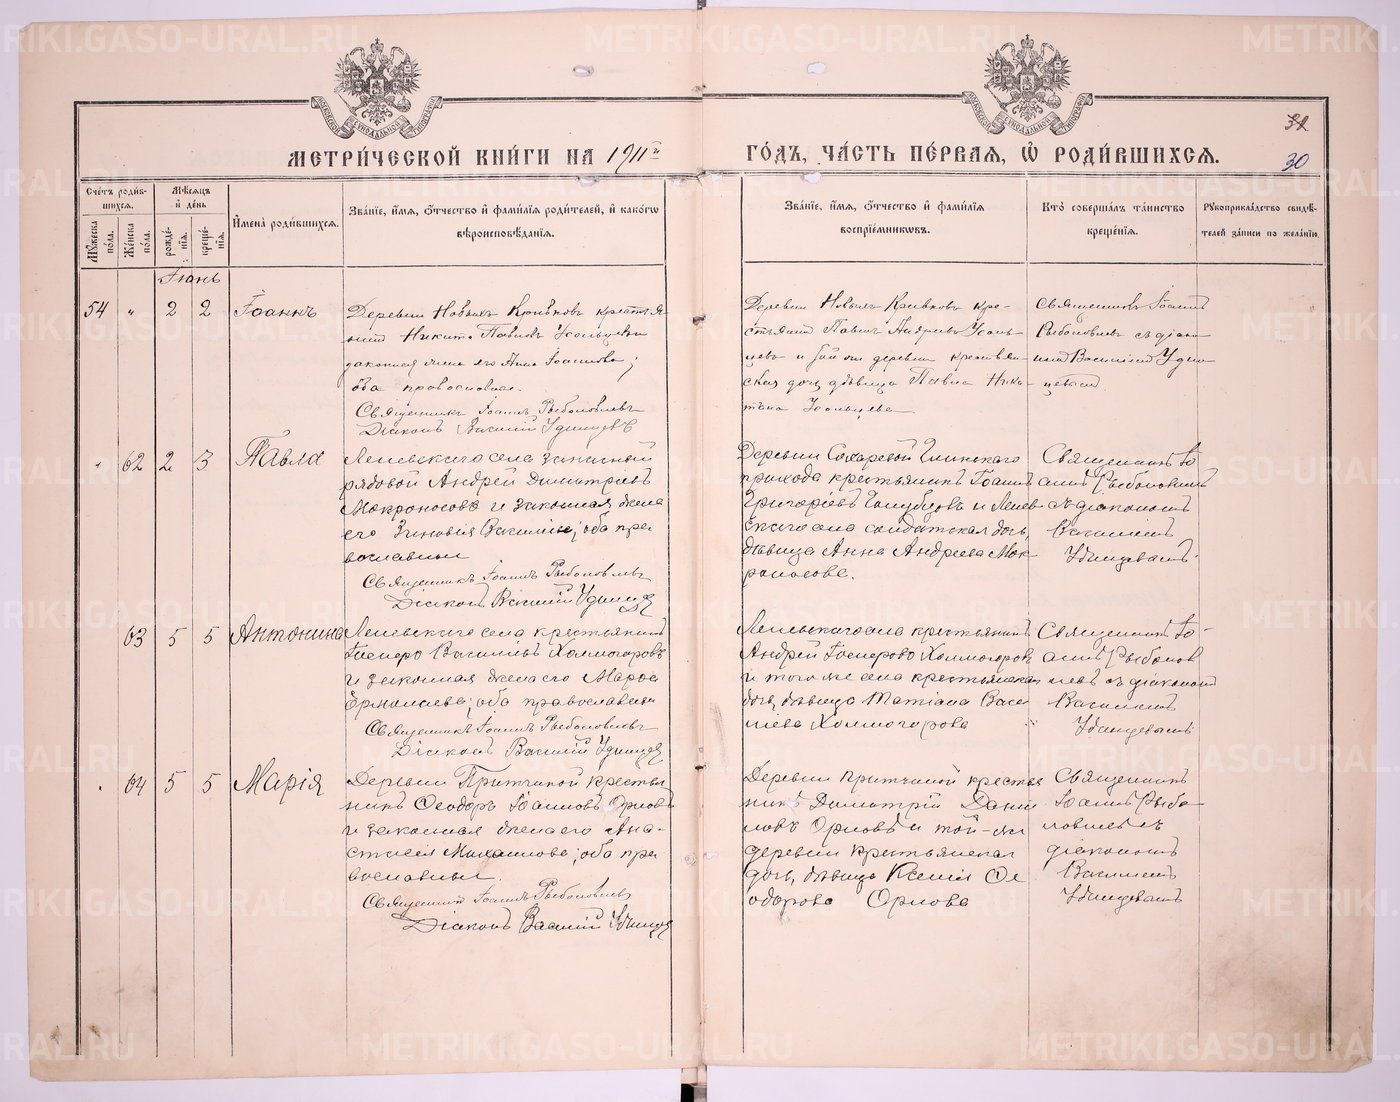 МЕТРИ́ЧЕСКОЙ КНИ́ГИ НА 1911й ГО́ДЪ, ЧА́СТЬ ПЕ́РВАЯ, Ѿ РОДИ́ВШИХСѦ.
32
30
Сче́тъ роди́в-
шихсѧ.
Мѣ́сѧцъ
и де́нь
Мꙋ́жеска по́ла.
Же́нска по́ла.
рожде́-
нїѧ.
креще́-
нїѧ.
И҆мена̀ роди́вшихсѧ.
Зва́нїе, и҆́мѧ, ѻ҆́тчество и҆ фами́лїѧ роди́телей, и҆ како́гѡ
вѣроисповѣ́данїѧ.
Зва́нїе, и҆́мѧ, ѻ҆́тчество и҆ фами́лїѧ
воспрїе́мниковъ.
Кто̀ соверша́лъ та́инство
креще́нїѧ.
Рꙋкоприкла́дство свидѣ́-
телей за́писи по жела́нїю.
Іюнь
54 " 2 2 Іоаннъ
Деревни Новыхъ Кривковъ крестья-
нинъ Никита Павловъ Усольцевъ
законная жена его Анна Іоаннова;
оба православные.
Священникъ Іоаннъ Рыболовлевъ
Діаконъ Василій Удинцевъ
Деревни Новыхъ Кривковъ кре-
стьянинъ Павелъ Андреевъ Усоль-
цевъ и той же деревни крестьян-
ская дочь дѣвица Павла Ники-
тина Усольцева
Священникъ Іоаннъ
Рыболовлевъ съ діако-
номъ Василіемъ Удин-
цевымъ
" 62 2 3 Павла
Леневскаго села запасный
рядовой Андрей Димитріевъ
Мокроносовъ и законная жена
его Зиновія Василіева; оба пра-
вославные
Священникъ Іоаннъ Рыболовлевъ
Діаконъ Василій Удинцевъ
Деревни Сохаревой Глинскаго
прихода крестьянинъ Іоаннъ
Григоріевъ Голубцовъ и Ленев-
скаго села солдатская дочь,
дѣвица Анна Андреева Мок-
роносова.
Священникъ Іо-
аннъ Рыболовлевъ
съ діакономъ
Василіемъ
Удинцевымъ
63 5 5 Антонина
Леневскаго села крестьянинъ
Василіевъ Холмогоровъ
и законная жена его Марѳа
Ермолаева; оба православные
Священникъ Іоаннъ Рыболовлевъ
Діаконъ Василій Удинцевъ
Леневскаго села крестьянинъ
Андрей Холмогоровъ
и того же села крестьянская
дочь, дѣвица Татіана Васи-
ліева Холмогорова
Священникъ Іо-
аннъ Рыболов-
левъ съ діакономъ
Василіемъ
Удинцевымъ
" 64 5 5 Марія
Деревни Притчиной крестья-
нинъ Ѳеодоръ Іоанновъ Орловъ
и законная жена его Ана-
стасія Михаилова; оба пра-
вославные.
Священникъ Іоаннъ Рыболовлевъ
Діаконъ Василій Удинцевъ
Деревни Притчиной крестья-
нинъ Димитрій Дани-
ловъ Орловъ и той-же
деревни крестьянская
дочь, дѣвица Ксенія Ѳе-
одорова Орлова
Священникъ
Іоаннъ Рыбо-
ловлевъ съ
діакономъ
Василіемъ
Удинцевымъ
METRIKI.GASO-URAL.RU